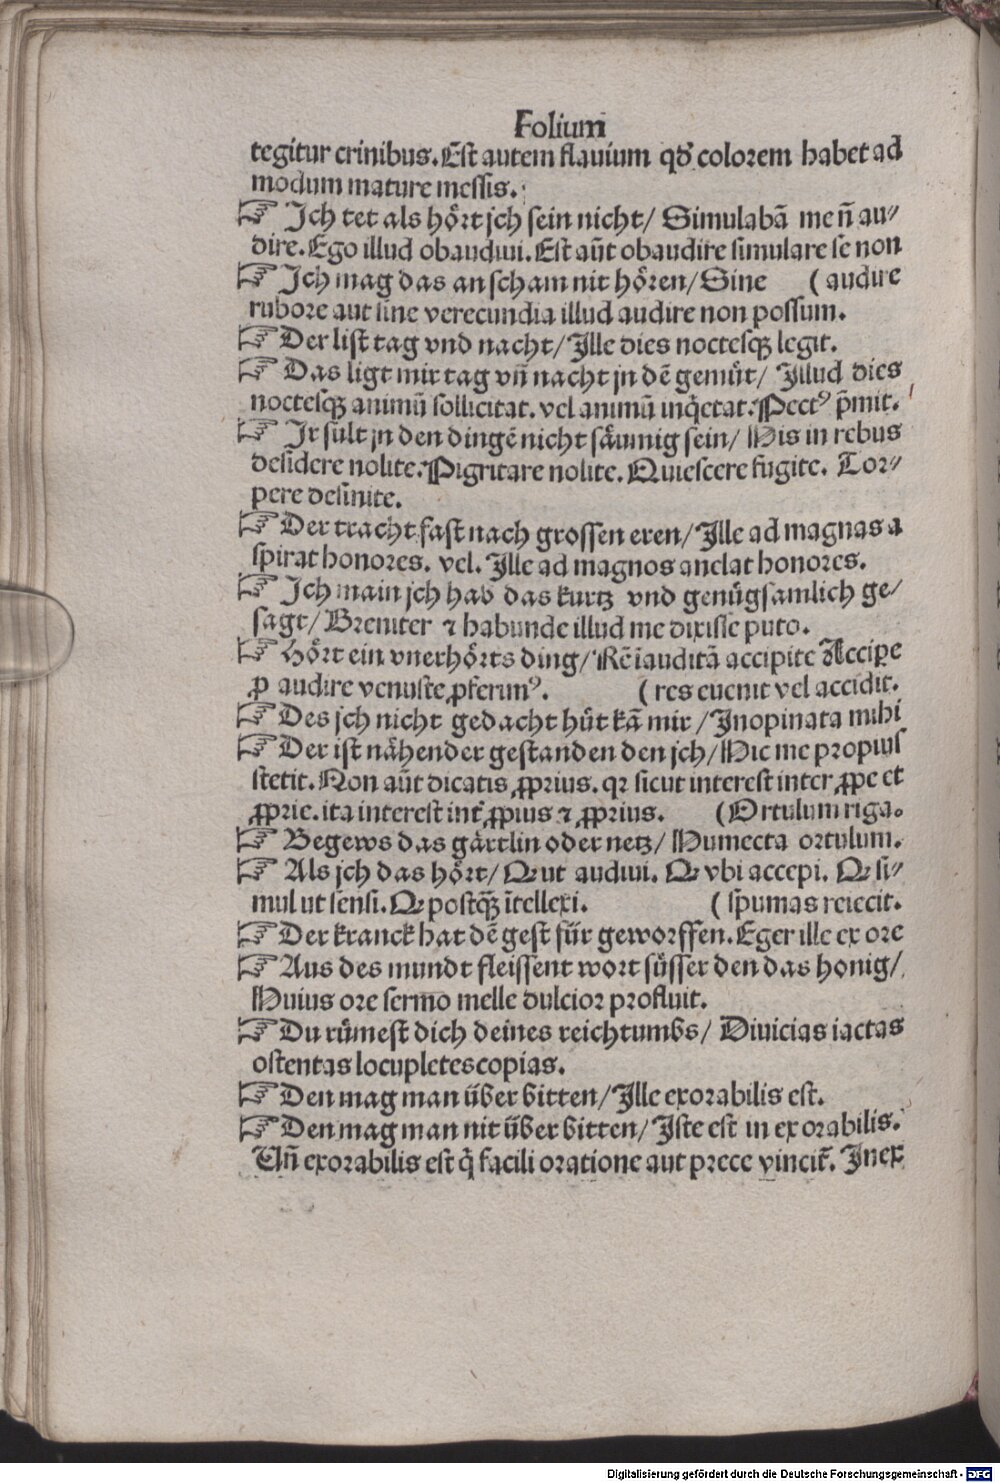 Folium
tegitur crinibus. Est autem flauium qď colorem habet ad
modum mature messis.
☞ Jch tet als hoͤrt jch sein nicht/ Simulabā me n̄ au⸗
dire. Ego illud obaudiui. Est aūt obaudire simulare se non
☞ Jch mag das an scham nit hoͤren/ Sine ( audire
rubore aut sine verecundia illud audire non possum.
☞ Der list tag vnd nacht/ Jlle dies noctesqꝫ legit.
☞ Das ligt mir tag vn̄ nacht jn dē gemuͤt/ Jllud dies
noctesqꝫ animū sollicitat. vel animū inq̇etat. Pectꝰ p̄mit.
☞ Jr sult jn den dingē nicht saͤumig sein/ His in rebus
desidere nolite. Pigritare nolite. Quiescere fugite. Tor⸗
pere desinite.
☞ Der tracht fast nach grossen eren/ Jlle ad magnas a
spirat honores. vel. Jlle ad magnos anelat honores.
☞ Jch main jch hab das kurtz vnd genuͤgsamlich ge⸗
sagt/ Breuiter ⁊ habunde illud me dixisse puto.
☞ Hoͤrt ein vnerhoͤrts ding/ Rē īauditā accipite Accipe
ꝓ audire venuste ꝓferimꝰ. ( res euenit vel accidit.
☞ Des jch nicht gedacht huͤt kā mir / Jnopinata mihi
☞ Der ist naͤhender gestanden den jch/ Hic me propius
stetit. Non aūt dicatis ꝓprius. qr sicut interest inter ꝓpe et
ꝓprie. ita interest int̄ ꝓpius ⁊ ꝓprius. ( Ortulum riga.
☞ Begews das gaͤrtlin oder netz/ Humecta ortulum.
☞ Als jch das hoͤrt/ Qꝫ ut audiui. Qꝫ vbi accepi. Qꝫ si⸗
mul ut sensi. Qꝫ postqꝫ̄ ītellexi. ( spumas reiecit.
☞ Der kranck hat dē gest fuͤr geworffen. Eger ille ex ore
☞ Aus des mundt fleissent wort suͤsser den das honig/
Huius ore sermo melle dulcior profluit.
☞ Du ruͤmest dich deines reichtumbs/ Diuicias iactas
ostentas locupletes copias.
☞ Den mag man uͤber bitten/ Jlle exorabilis est.
☞ Den mag man nit uͤber bitten/ Jste est in exorabilis.
Vn̄ exorabilis est q̇ facili oratione aut prece vincit̄. Jnex
Digitalisierung gefördert durch die Deutsche Forschungsgemeinschaft - DFG